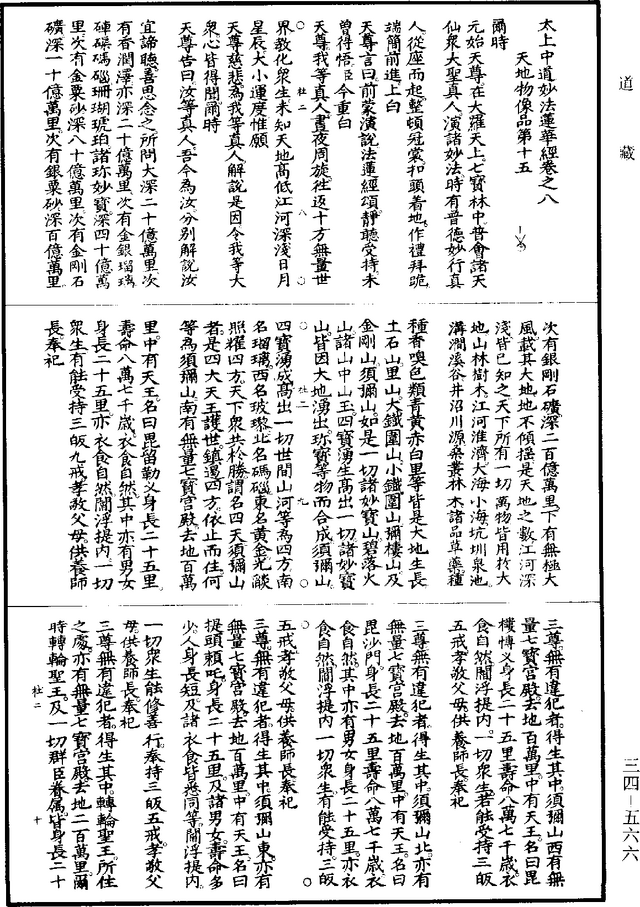 道藏
太上中道妙法蓮華經卷之八
天地物像品第十五
爾時
元始天尊在大羅天上七寶林中普會諸天
仙衆大聖真人演諸妙法時有普德妙行真
人從座而起整頓冠裳和頭着地作禮拜跪
端簡前進上白
天尊言曰前蒙演說法蓮經頌靜聽受持未
曾得悟臣今重白
天尊我等真人晝夜周旋往返十方無量世
杜二 八
界教化衆生求知天地高低江河深淺日月
星辰大小運度惟願
天尊慈悲為我等真人解說是因令我等大
衆心皆得開爾時
天尊告曰汝等真人吾今為汝分別解說汝
宜諦聽善思念之所問大深二十億萬里次
有香潤澤亦深二十億萬里次有金銀瑠璃
硨磲碼碯珊瑚琥珀諸珎妙寶深四十億萬
里次有金粟砂深八十億萬里次有金剛石
礦深一十億萬里次有銀粟砂深百億萬里
次有銀剛石礦深二百億萬里下有無極大
風武其大地地不傾搖是天地之數江河深
淺皆已知之天下所有一切萬物皆用於大
地山林樹木江河淮濟大海小海坑圳泉池
溝澗溪谷井沼川源桑叢林木諸品草藥種
種香嗅色類青黃赤白黑等皆是大地生長
土石山黑山大鐵圍山小鐵圍山彌樓山及
金剛山須彌山如是一切諸妙寶山碧落火
山諸山中山王四寶湧生高出一切諸妙寶
山皆因大地湧出珎寶等物而合成須彌山
杜二 九
四寶湧成高出一切世間山河等為四方南
名瑠璃西名玻瓈北名碼碯東名黃金光燄
照耀四方天下衆共於勝謂名四天須彌山
者是四大天王護世鎮遏四方依止而住何
等為須彌山南有無量七寶宮殿去地百萬
里中有天王名曰毘留勤义身長二十五里
壽命八萬七千歲衣食自然其中亦有男女
身長二十五里亦衣食自然閻浮提內一切
衆生有能受持三皈九戒孝敬父母供養師
長奉祀
三尊無有違犯者得生其中須彌山西有無
量七寶宮殿去地百萬里中有天王名曰毘
樓博义身長二十五里壽命八萬七千歲衣
食自然閻浮提內一切衆生若能受持三皈
五戒孝敬父母供養師長奉祀
三尊無有違犯者得生其中須彌山北亦有
無量七寶宮殿去地百萬里中有天王名曰
毘沙門身長二十五里壽命八萬七千歲衣
食自然其中亦有男女身長二十五里亦衣
食自然閻浮提內一切衆生有能受持三皈
五戒孝敬父母供養師長奉祀
三尊無有違犯者得生其中須彌山東亦有
無量七寶宮殿去地百萬里中有天王名曰
提頭頼吒身長二十五里及諸男女壽命多
少人身長短及諸衣食皆悉同等閻浮提內
一切衆生能修善行奉持三皈五戒孝敬父
母供養師長奉祀
三尊無有違犯者得生其中轉輪聖王所住
之處亦有無量七寶宮殿去地二百萬里爾
時轉輪聖王及一切群臣眷属皆身長二十
杜二 十
三四－五六六